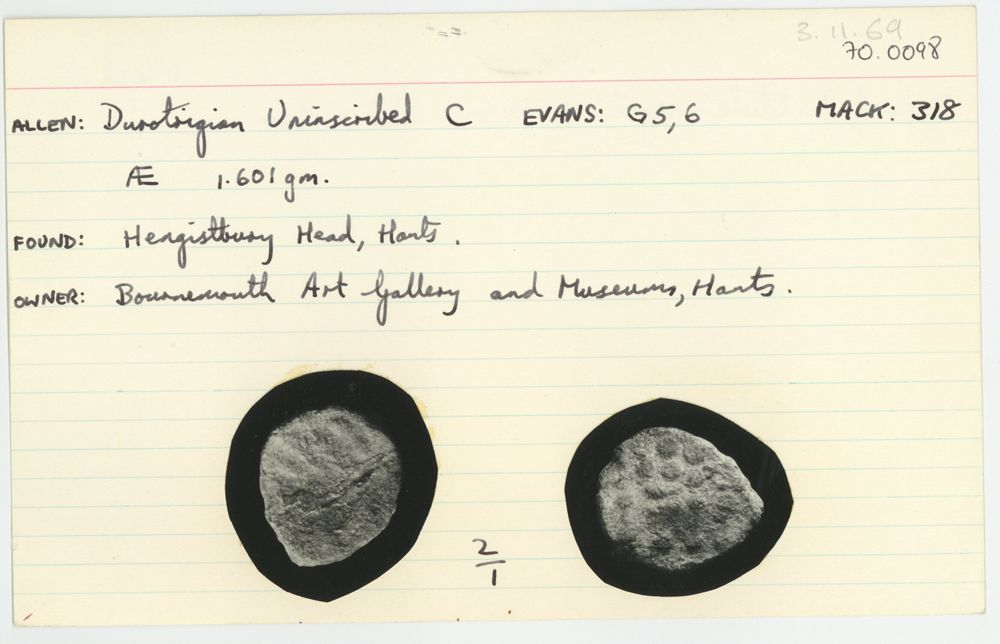 3.11.69
70.0098
ALLEN: Durotrigian Uninscribed C EVANS: G5,6 MACK: 318
Æ 1.601 gm.
FOUND: Hengistbury Head, Hants.
OWNER: Bournemouth Art Gallery and Museums, Hants.
2
1